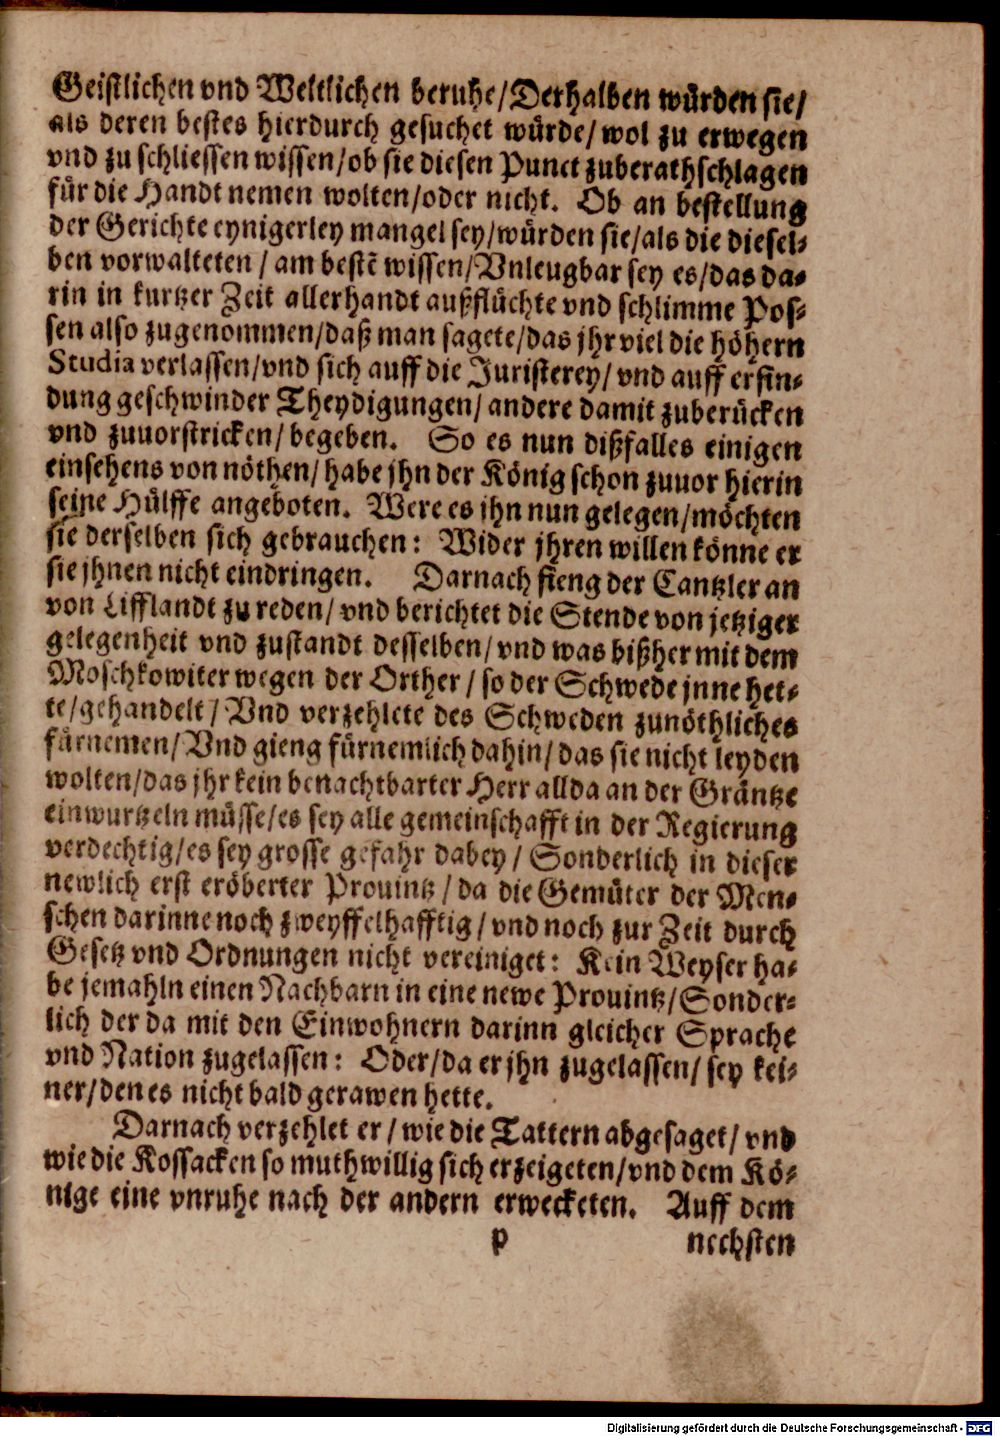 Geistlichen vnd Weltlichen beruhe/Derhalben würden sie/
als deren bestes hierdurch gesuchet würde/wol zu erwegen
vnd zu schliessen wissen/ob sie diesen Punct zuberathschlagen
für die Handt nemen wolten/oder nicht. Ob an bestellung
der Gerichte eynigerley mangel sey/würden sie/als die diesel-
ben vorwalteten/am bestē wissen/Vnleugbar sey es/das da-
rin in kurtzer Zeit allerhandt außflüchte vnd schlimme Pos-
sen also zugenommen/daß man sagete/das jhr viel die höhern
Studia verlassen/vnd sich auff die Juristerey/vnd auff erfin-
dung geschwinder Theydigungen/andere damit zuberücken
vnd zuuorstricken/begeben. So es nun dißfalles einigen
einsehens von nöthen/habe jhn der König schon zuuor hierin
seine Hülffe angeboten. Were es jhn nun gelegen/möchten
sie derselben sich gebrauchen: Wider jhren willen könne er
sie jhnen nicht eindringen. Darnach fieng der Cantzler an
von Lifflandt zu reden/vnd berichtet die Stende von jetziger
gelegenheit vnd zustandt desselben/vnd was bißher mit dem
Moschkowiter wegen der Orther/so der Schwede jnne het-
te/gehandelt/Vnd verzehlete des Schweden zunöthliches
fürnemen/Vnd gieng fürnemlich dahin/das sie nicht leyden
wolten/das jhr kein benachtbarter Herr allda an der Gräntze
einwurtzeln müsse/es sey alle gemeinschafft in der Regierung
verdechtig/es sey grosse gefahr dabey/Sonderlich in dieser
newlich erst eröberter Prouintz/da die Gemüter der Men-
schen darinne noch zweyffelhafftig/vnd noch zur Zeit durch
Gesetz vnd Ordnungen nicht vereiniget: Kein Weyser ha-
be jemahln einen Nachbarn in eine newe Prouintz/Sonder-
lich der da mit den Einwohnern darinn gleicher Sprache
vnd Nation zugelassen: Oder/da er jhn zugelassen/sey kei-
ner/den es nicht bald gerawen hette.
Darnach verzehlet er/wie die Tattern abgesaget/vnd
wie die Kossacken so muthwillig sich erzeigeten/vnd dem Kö-
nige eine vnruhe nach der andern erwecketen. Auff dem
P nechsten
Digitalisierung gefördert durch die Deutsche Forschungsgemeinschaft - DFG